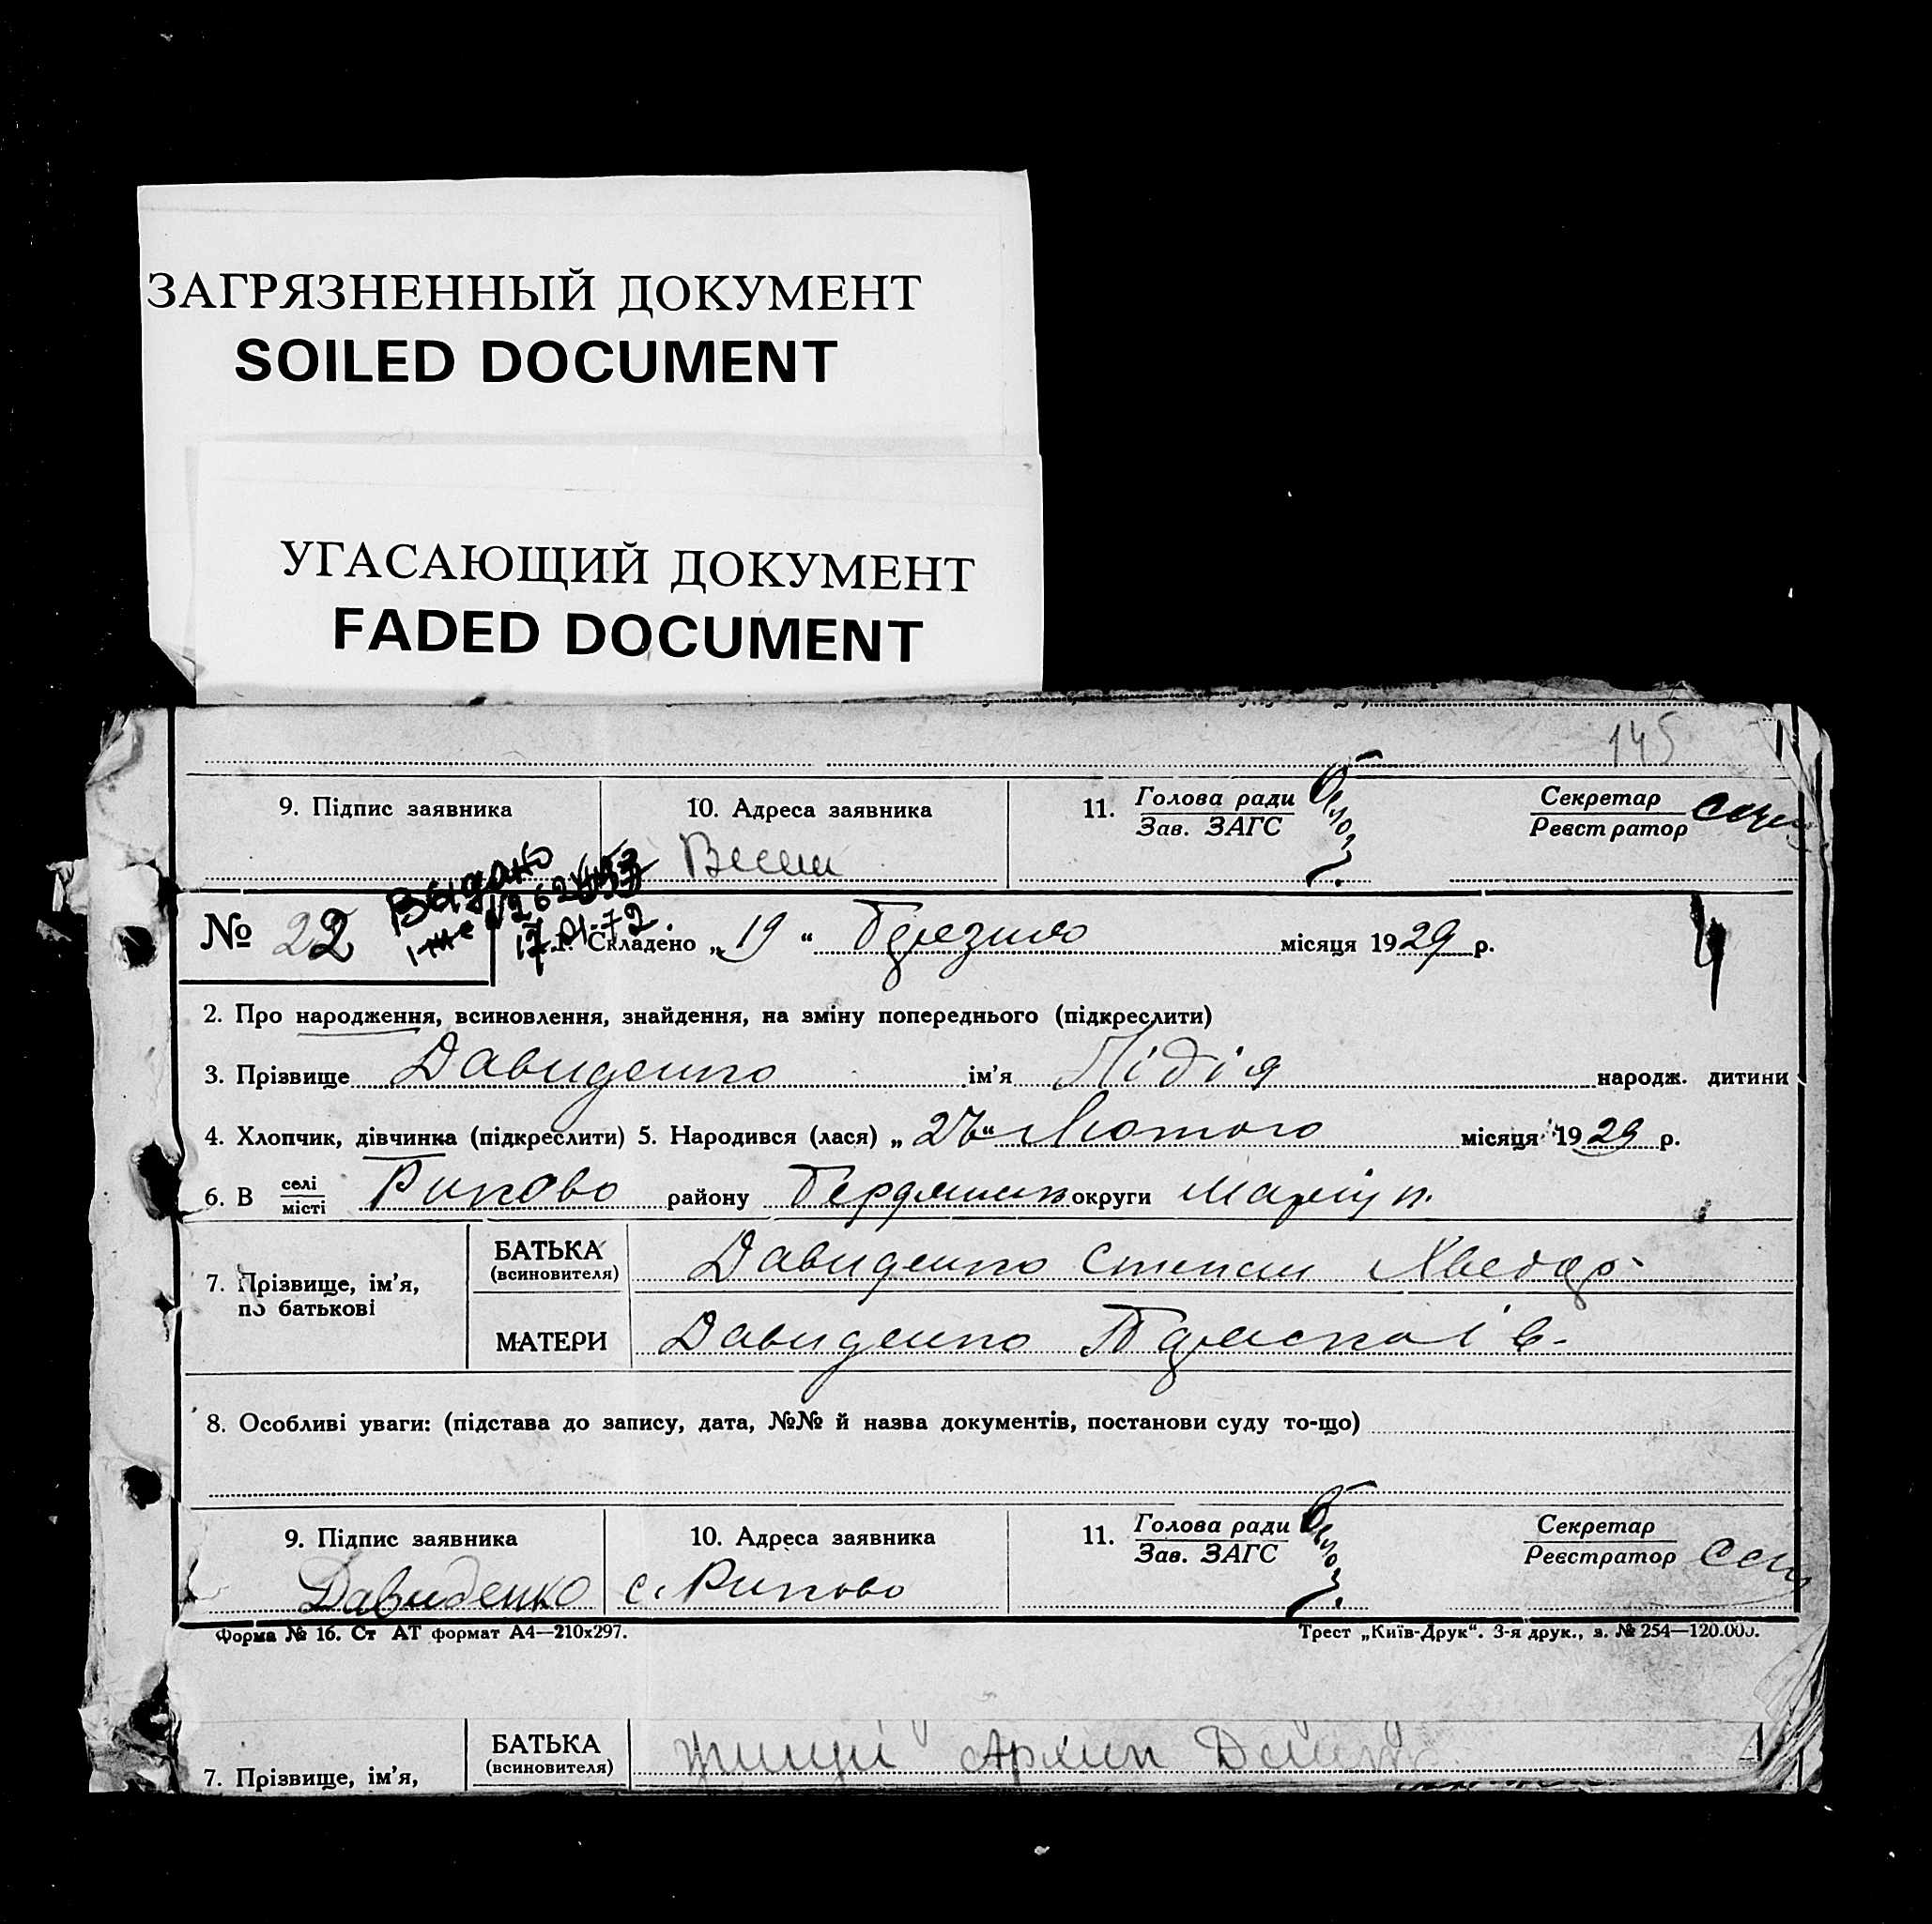 ЗАГРЯЗНЕННЫЙ ДОКУМЕНТ
SOILED DOCUMENT
УГАСАЮЩИЙ ДОКУМЕНТ
FADED DOCUMENT
145
9. Підпис заявника 10. Адреса заявника 11. Голова ради Секретар
Зав. ЗАГС Реєстратор
Выдано
№ 22 1. Складено „19“ Березня місяця 1929 р.
2. Про народження, всиновлення, знайдення, на зміну попереднього (підкреслити)
3. Прізвище Давиденко ім'я Лідія народж. дитини
4. Хлопчик, дівчинка (підкреслити) 5. Народився (лася) „ “ Лютого місяця 1929 р.
6. В селі районy Бердянськ округи Маріуп.
місті
БАТЬКА Давиденко Степан Хведор-
(всиновителя)
7. Прізвище, ім'я,
по батькові
МАТЕРИ Давиденко
8. Особливі уваги: (підстава до запису, дата, №№ й назва документів, постанови суду то-що)
9. Підпис заявника 10. Адреса заявника 11. Голова ради Секретар
Зав. ЗАГС Реєстратор
Давиденко с.
Форма № 16. Ст АТ формат А4—210х297. Трест „Київ-Друк“. 3-я друк., з. № 254—120.000.
БАТЬКА Архип
(всиновителя)
7. Прізвище, ім'я,